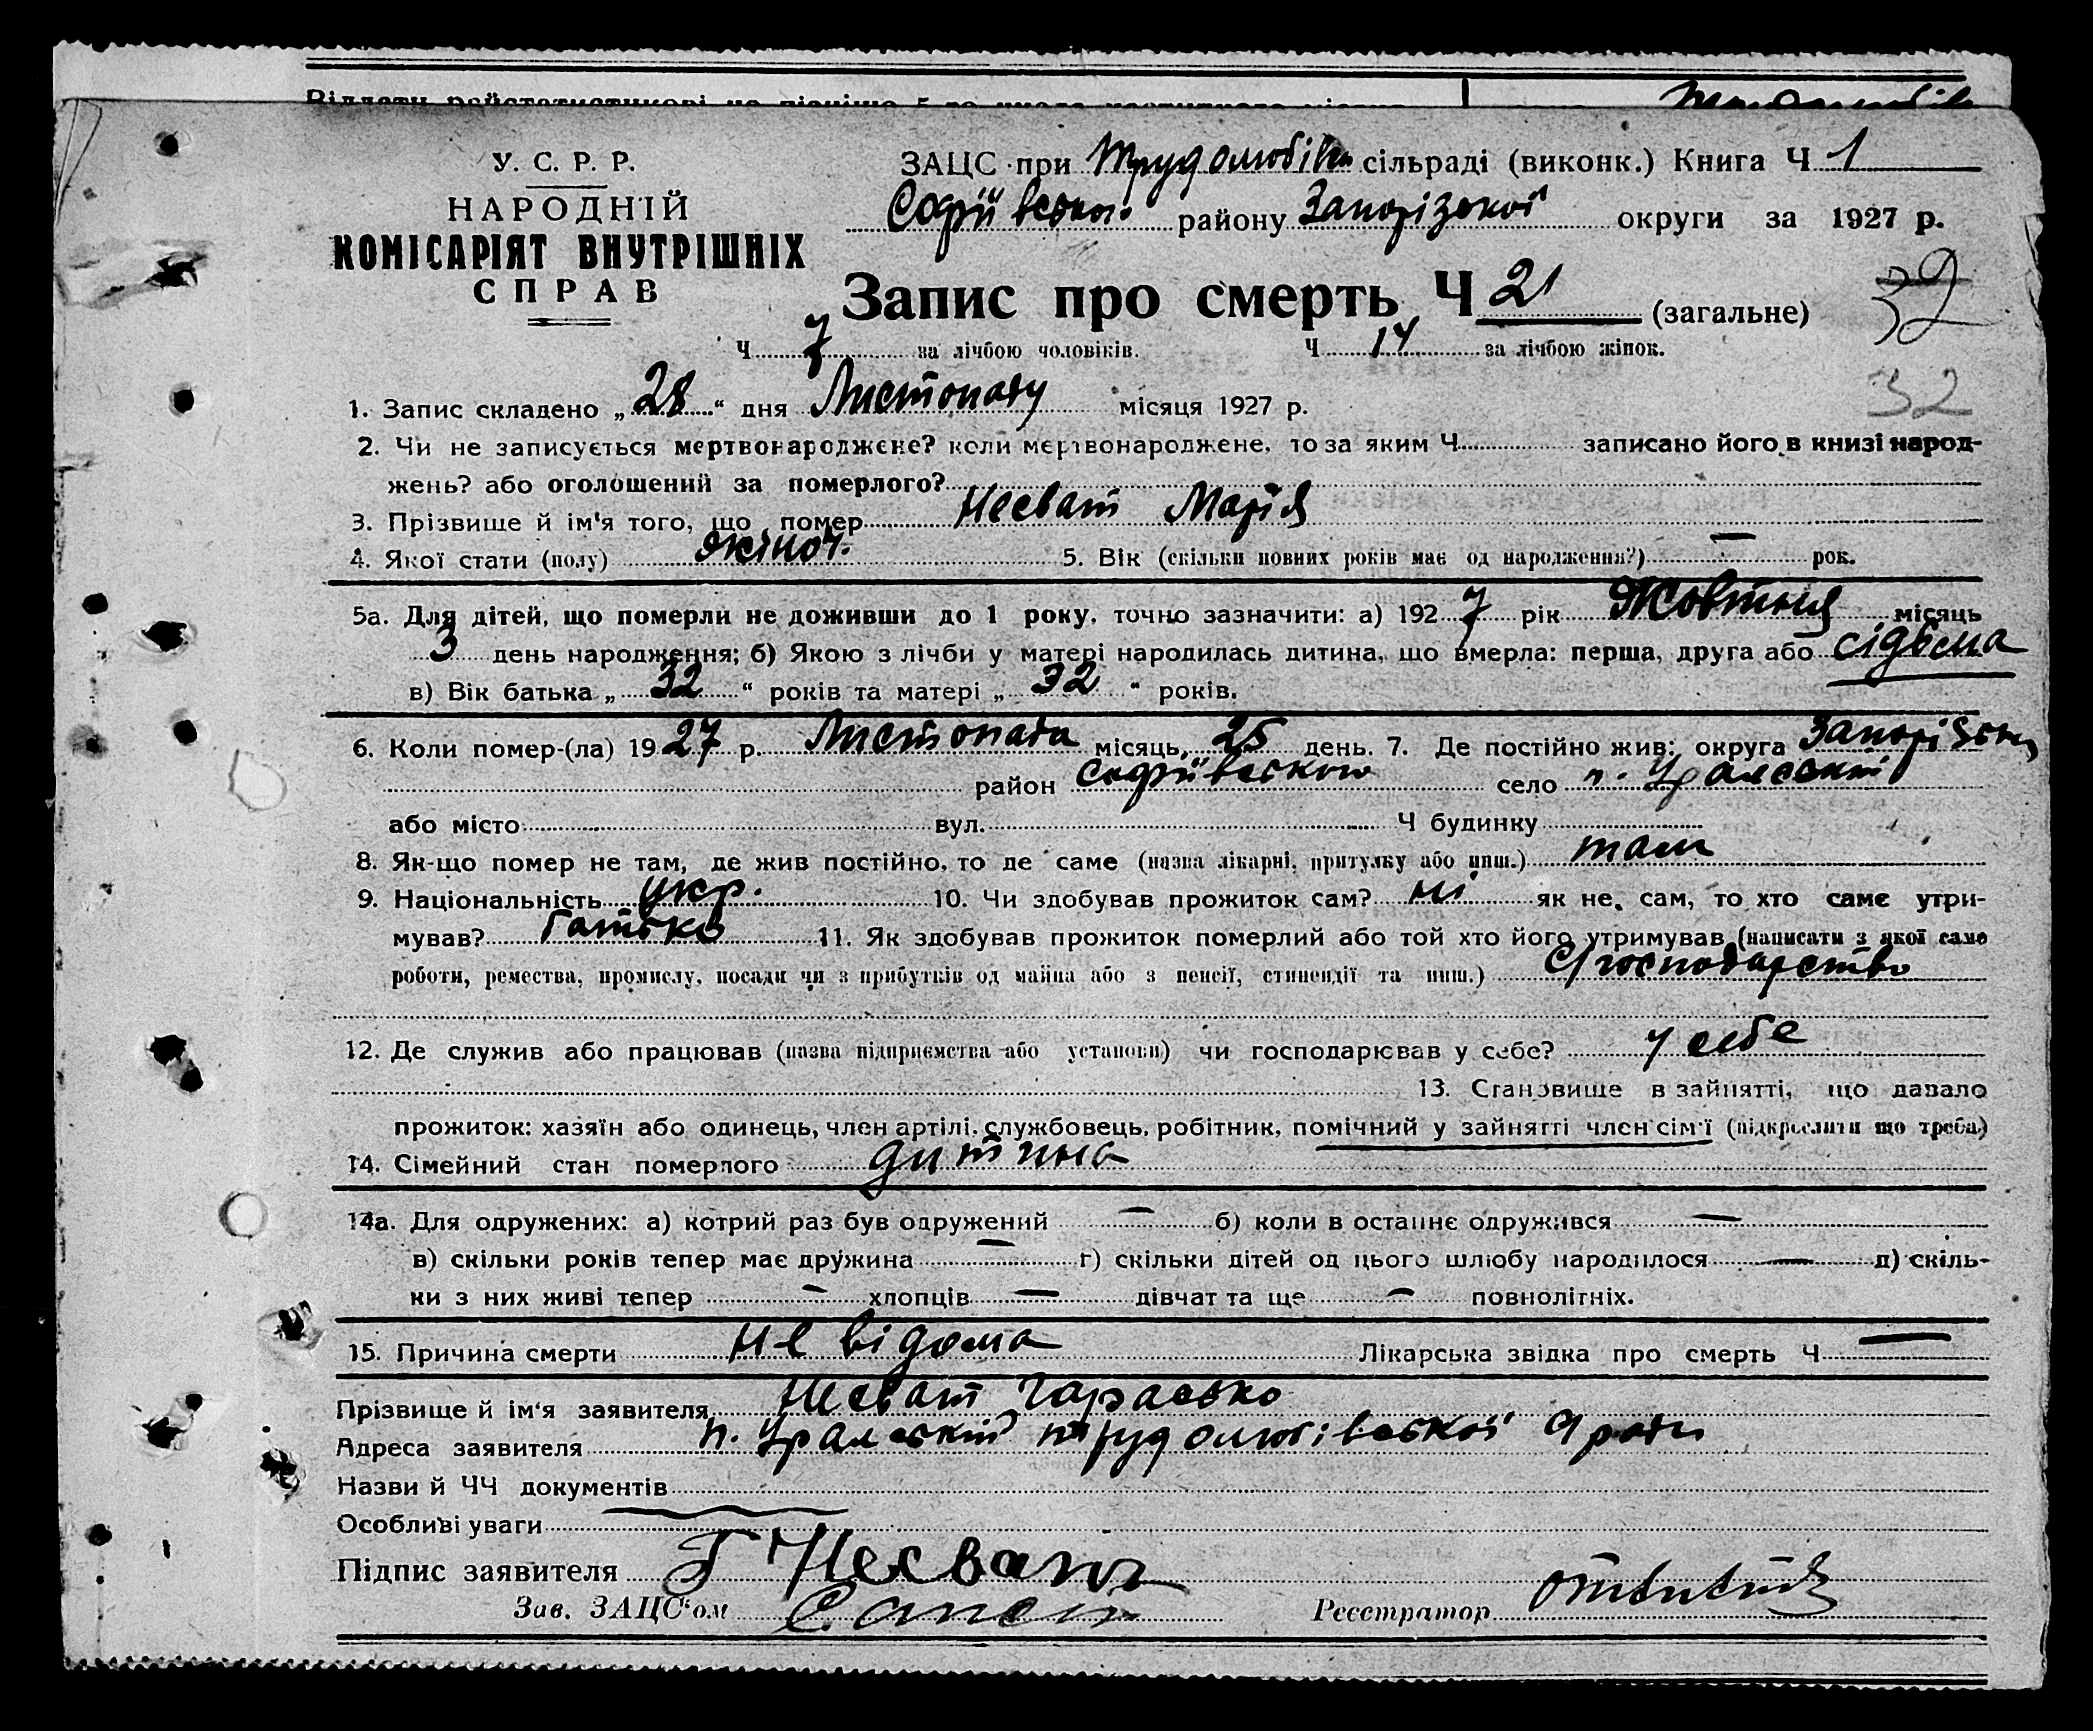 У. С. Р. Р.
НАРОДНІЙ
КОМІСАРІЯТ ВНУТРІШНІХ
СПРАВ
ЗАЦС при Трудолюбівк сільраді (виконк.) Книга Ч 1
Софіївського району Запорізької округи за 1927 р.
Запис про смерть Ч 21 (загальне)
32
Ч 7 за лічбою чоловіків. Ч 14 за лічбою жінок.
32
1. Запис складено „28“ дня Листопаду місяця 1927 р.
2. Чи не записується мертвонароджене? коли мертвонароджене, то за яким Ч записано його в книзі народ-
жень? або оголошений за померлого?
3. Прізвище й ім'я того, що помер Несват Марія
4. Якої стати (полу) жіноч. 5. Вік (скільки повних років має од народження?) — рок.
5а. Для дітей, що померли не доживши до 1 року, точно зазначити: а) 1927 рік Жовтня місяць
3 день народження; б) Якою з лічби у матері народилась дитина, що вмерла: перша, друга або сідьома
в) Вік батька „32“ років та матері „32“ років.
6. Коли помер-(ла) 1927 р. Листопада місяць, 25 день. 7. Де постійно жив: округа Запорізьк
район Софіївського село п. Уральский
або місто вул. Ч будинку
8. Як-що помер не там, де жив постійно, то де саме (назва лікарні, притулку або инш.) там
9. Національність укр. 10. Чи здобував прожиток сам? ні як не, сам, то хто саме утри-
мував? Батько 11. Як здобував прожиток померлий або той хто його утримував (написати з якої саме
роботи, ремества, промислу, посади чи з прибутків од майна або з пенсії, стипендії та инш.) С/господарство
12. Де служив або працював (назва підприємства або установи) чи господарював у себе? у себе
13. Становище в зайнятті, що давало
прожиток: хазяїн або одинець, член артілі, службовець, робітник, помічний у зайнятті член сім'ї (підкреслити що треба)
14. Сімейний стан померлого дитина
14а. Для одружених: а) котрий раз був одружений — б) коли в останнє одружився —
в) скільки років тепер має дружина — г) скільки дітей од цього шлюбу народилося — д) скіль-
ки з них живі тепер — хлопців — дівчат та ще — повнолітніх.
15. Причина смерти не відома Лікарська звідка про смерть Ч —
Прізвище й ім'я заявителя Несват Гарасько
Адреса заявителя п. Уральский Трудолюбівської С/ради
Назви й ЧЧ документів
Особливі уваги
Підпис заявителя Г Несват
Зав. ЗАЦС'ом Реєстратор